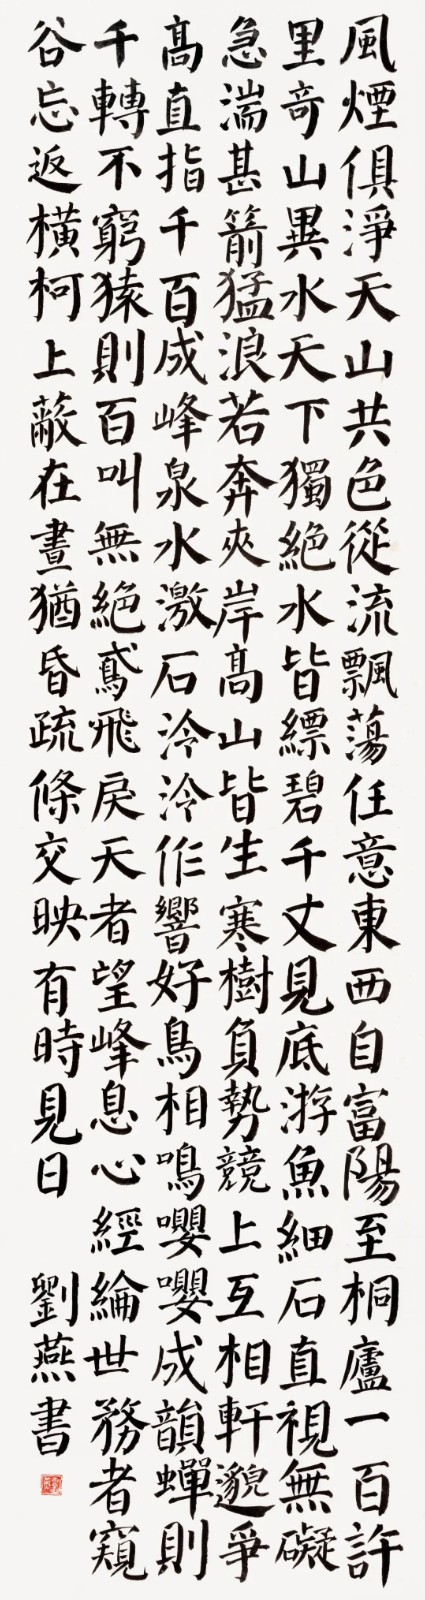 風煙俱淨天山共色從流飄蕩任意東西自富陽至桐廬一百許
里竒山異水天下獨絶水皆縹碧千丈見底游魚細石直視無礙
急湍甚箭猛浪若奔夾岸髙山皆生寒樹負勢競上互相軒邈爭
髙直指千百成峰泉水激石泠泠作響好鳥相鳴嚶嚶成韻蟬則
千轉不窮猿則百叫無絶鳶飛戾天者望峰息心經綸世務者窺
谷忘返橫柯上蔽在晝猶昏疏條交映有時見日 劉燕書